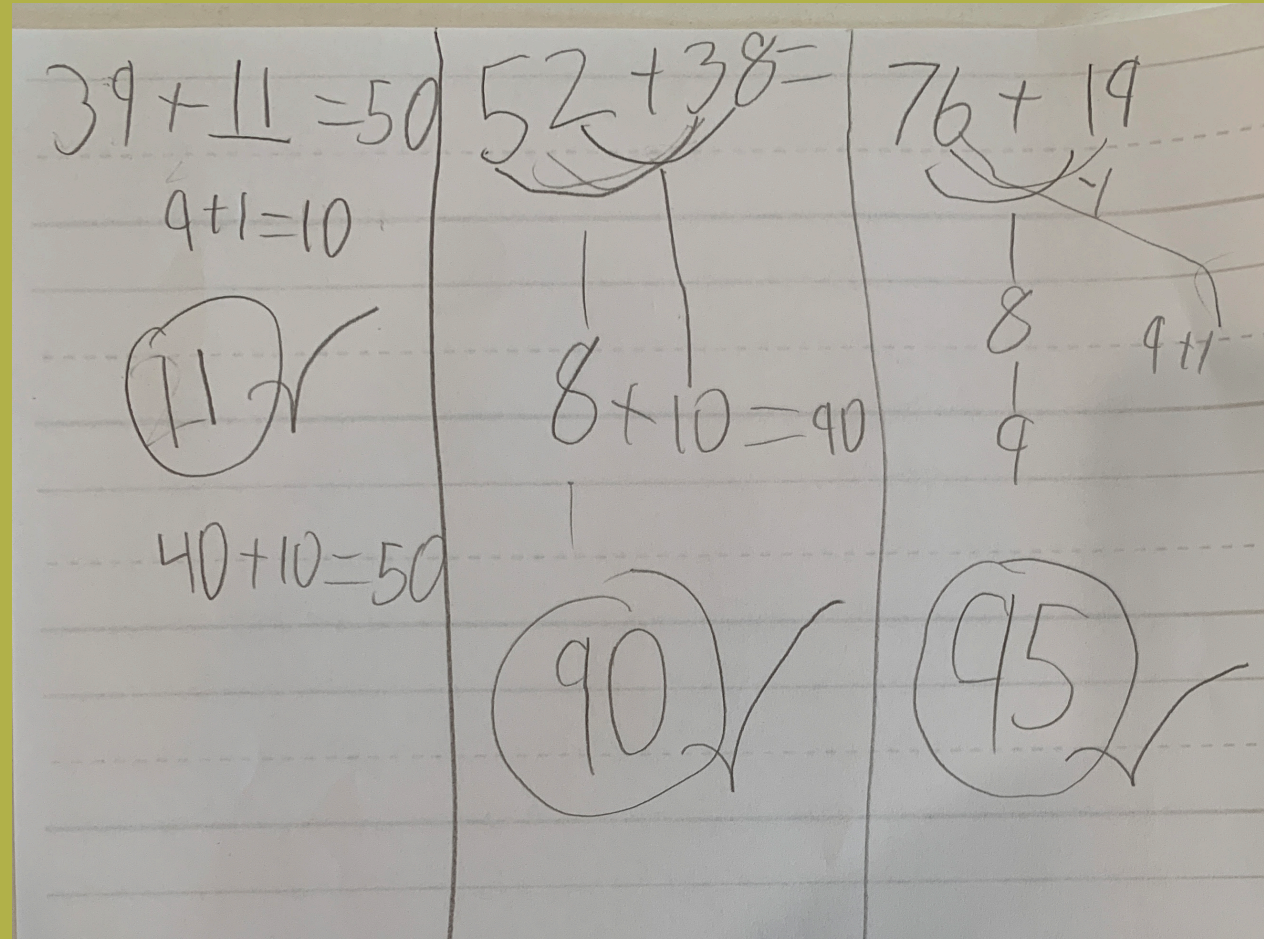 39 + 11 = 50
9+1=10
11
40+10=50
52 + 38 =
8 + 10 = 90
90
76 + 19
-1
8
9 +1
9
95